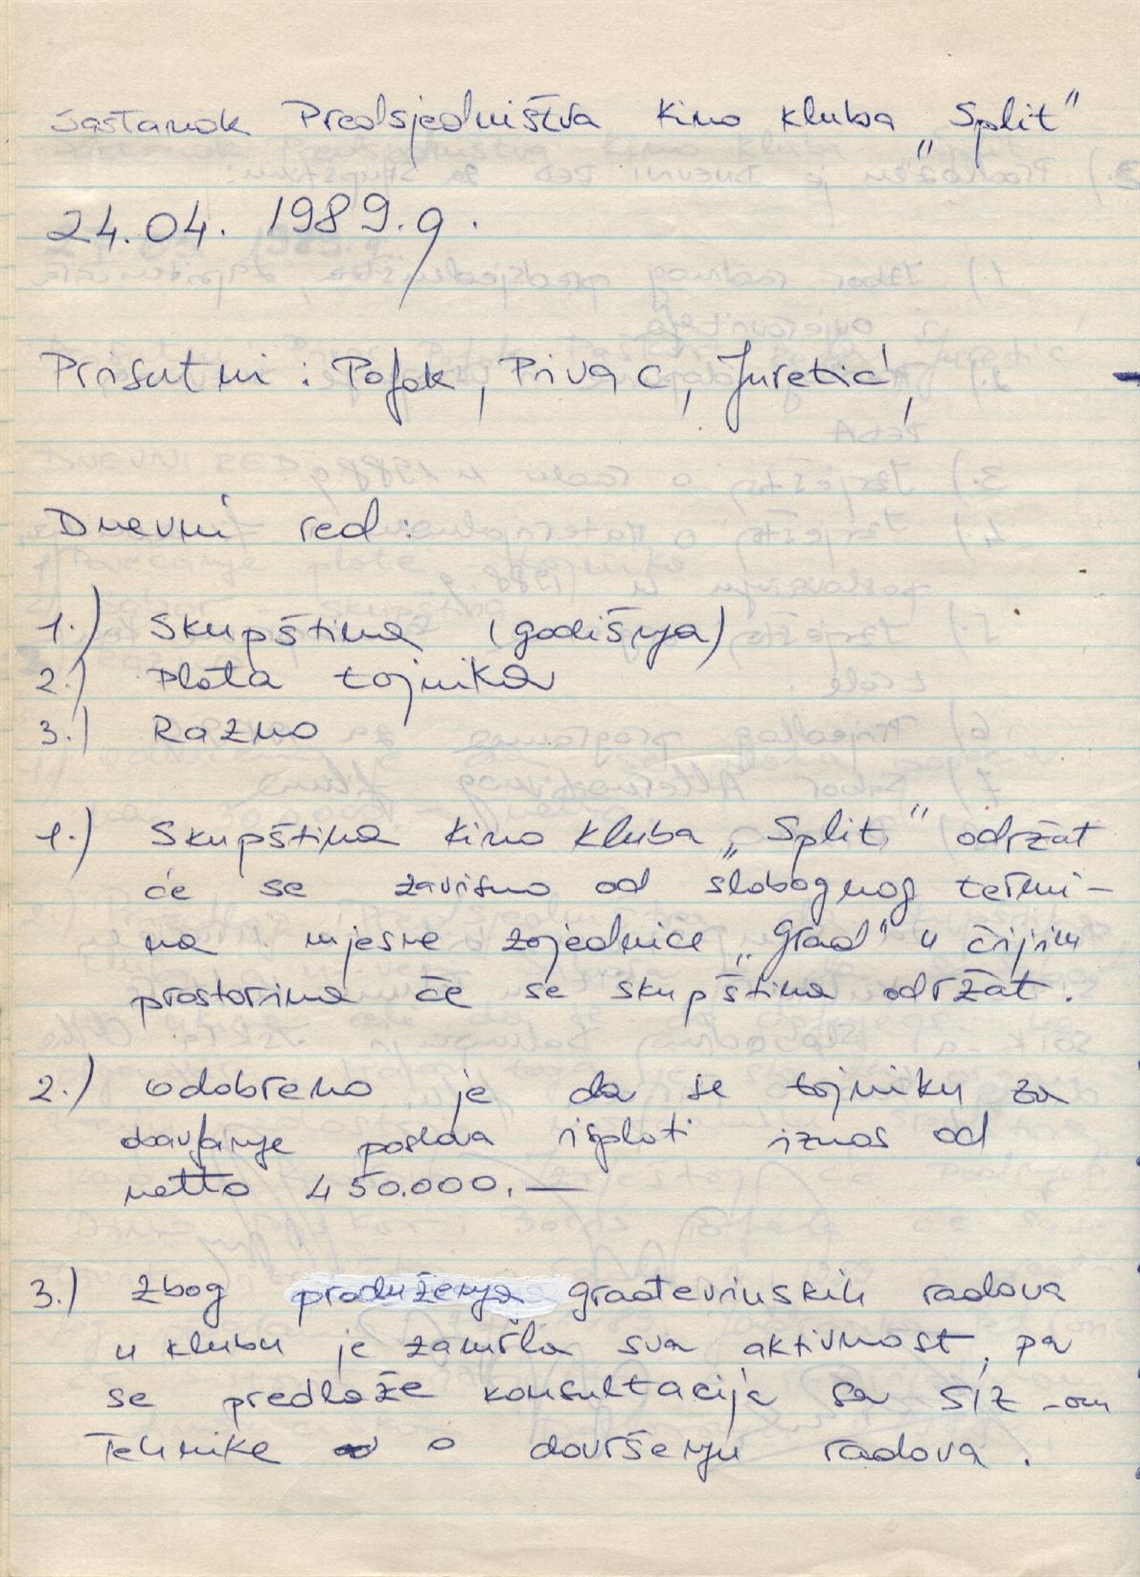 Sastanak Predsjedništva Kino kluba „Split"
24.04. 1989.g.
Prisutni : Poljak, Privac, Juretić,
Dnevni red:
1.) Skupština (godišnja)
2.) Plata tajnika
3.) Razno
1.) Skupština Kino kluba „Split" održat
će se zavisno od slobognog termi-
na mjesne zajednice „Grad" u čijim
prostorima če se skupština održat.
2.) Odobreno je da se tajniku za
obavljanje poslova isplati iznos od
netto 450.000.—
3.) Zbog produženja građevinskih radova
u klubu je zamrla sva aktivnost, pa
se predlaže konsultacija sa SIZ-om
Tehnike o dovršenju radova.